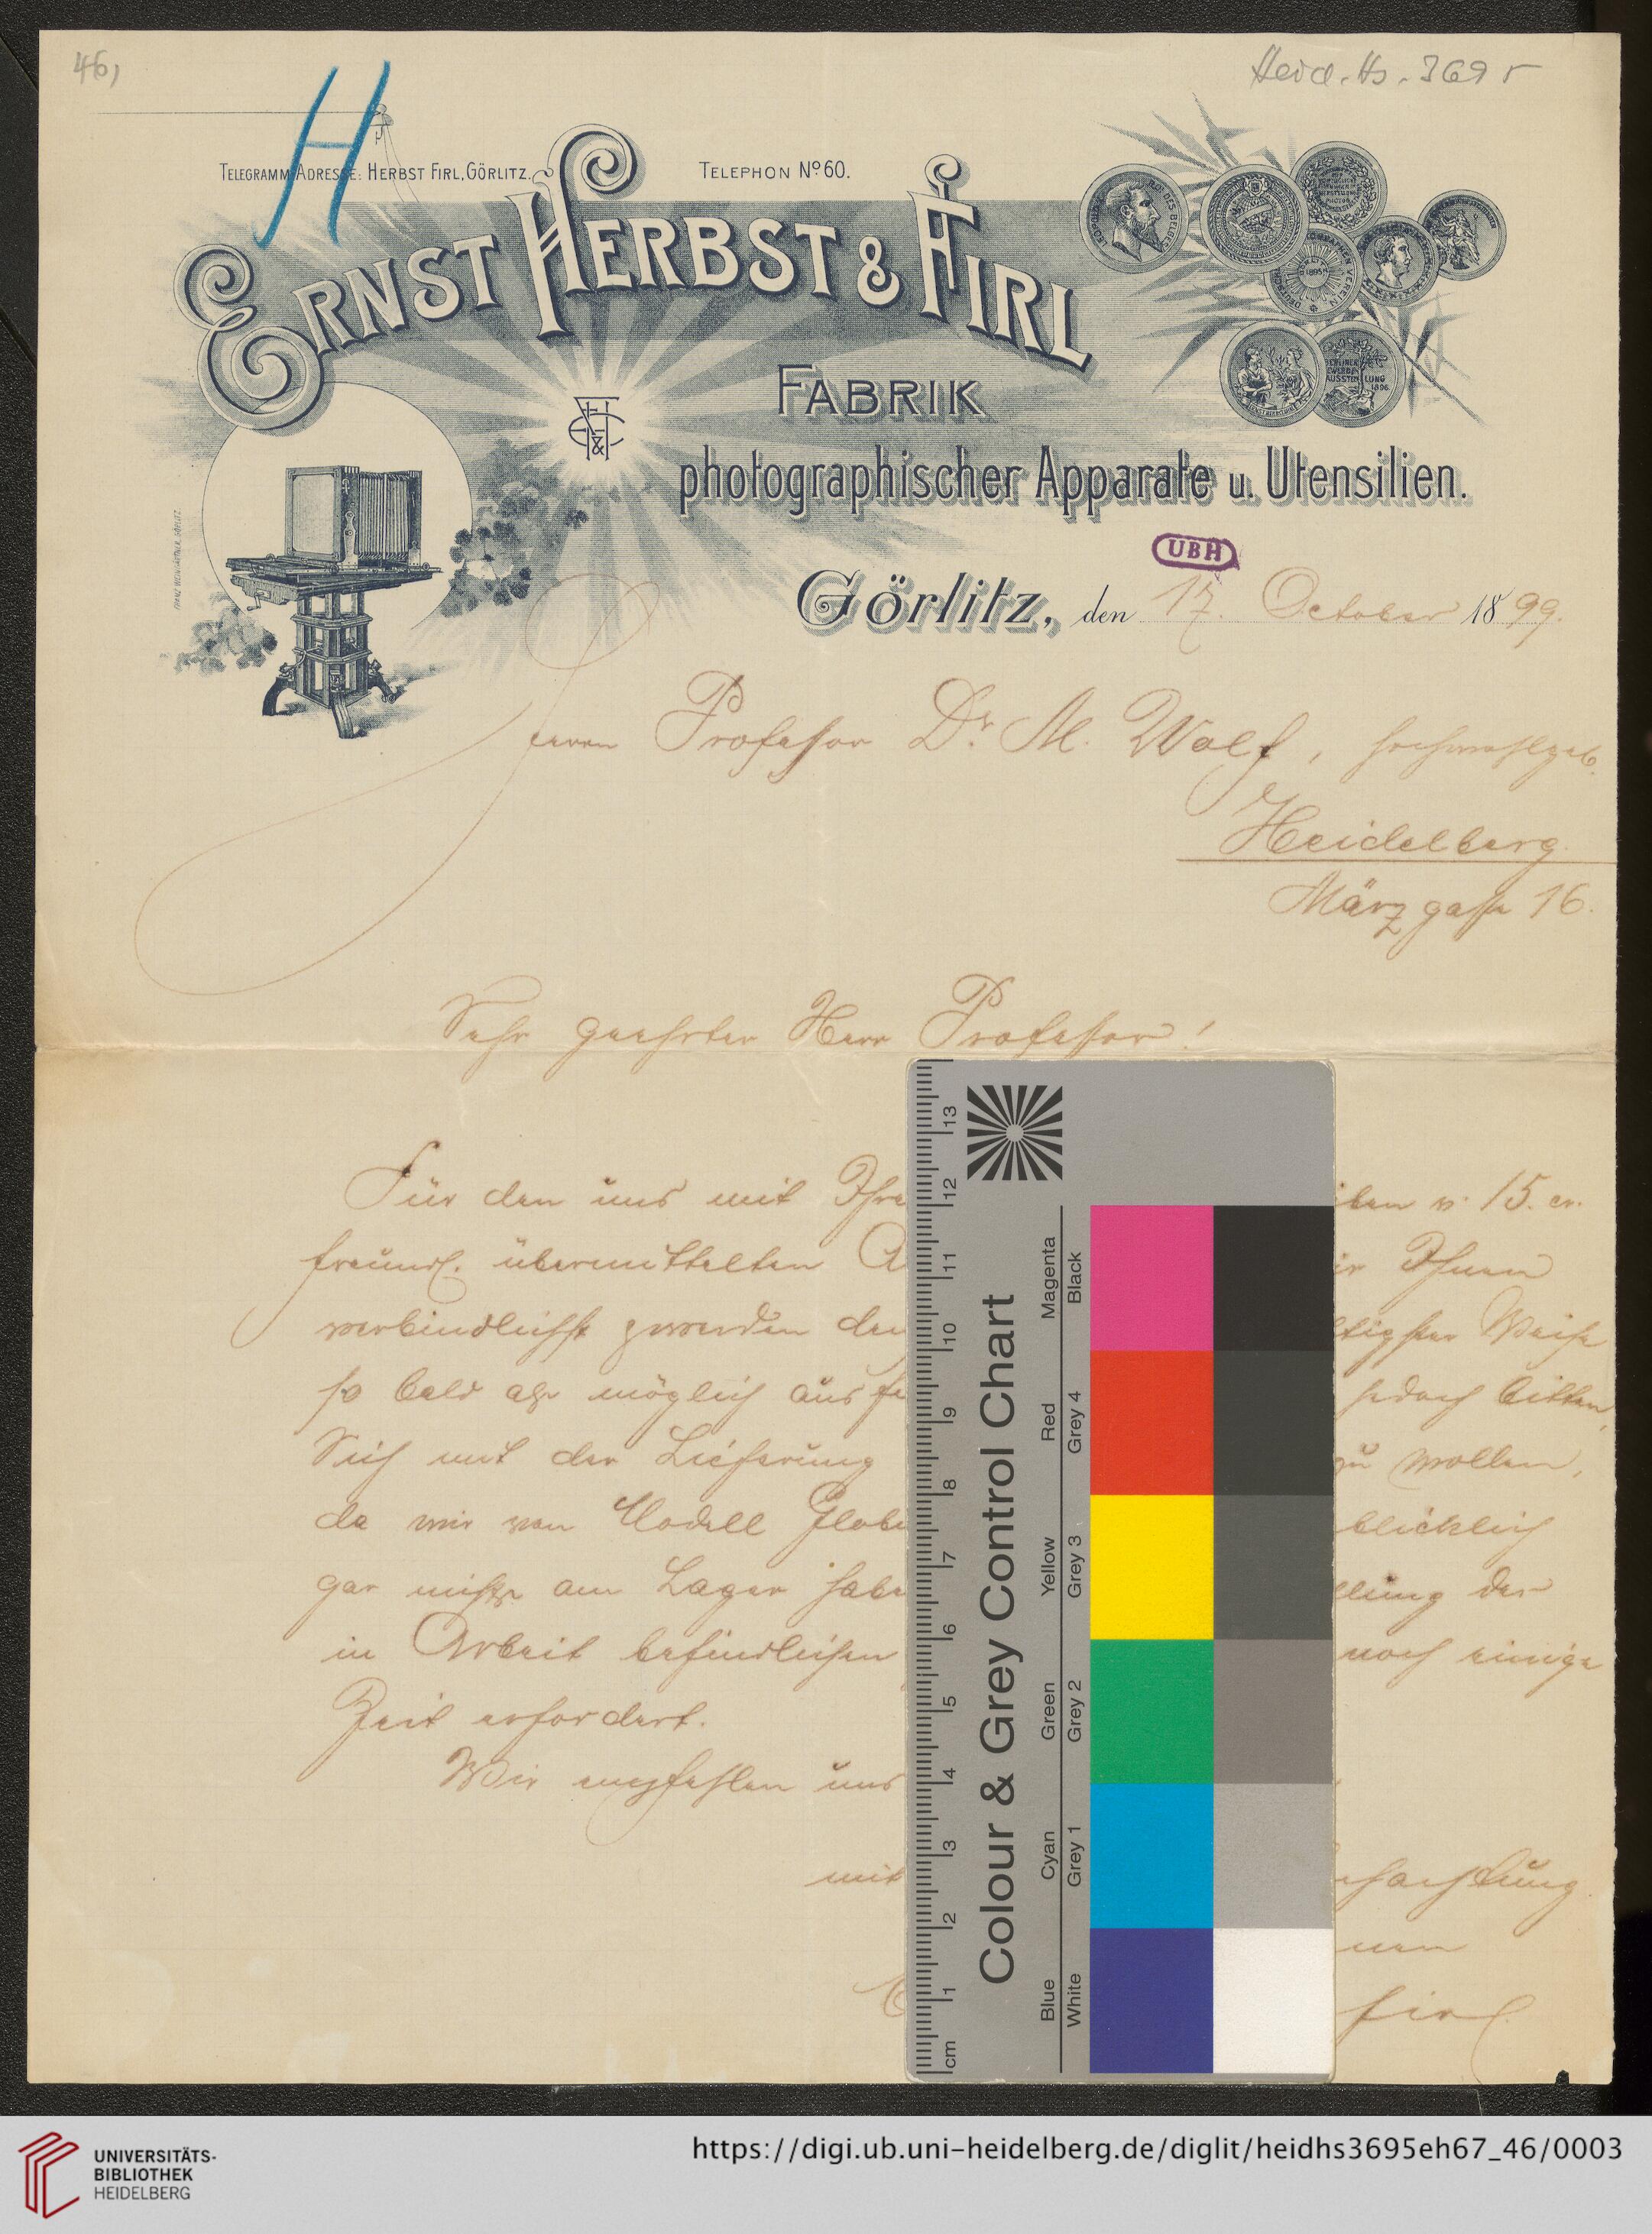 46,
Heid. Hs. 369 5
H
TELEGRAMM-ADRESSE: HERBST FIRL, GÖRLITZ.
TELEPHON Nº 60.
ERNST HERBST & FIRL
FABRIK
photographischer Apparate u. Utensilien.
FRANZ WEINGÄRTNER, GÖRLITZ
UBH
Görlitz, den 17. October 1899.
Herrn Professor Dr. M. Wolf, Hochwohlgeb.
Heidelberg
Märzgasse 16.
Sehr geehrter Herr Professor!
Für den uns mit Ihre ben v. 15. cr.
freundl. übermittelten A ir Ihnen
verbindlichst den tigster Weise
so bald als möglich aus jedoch bitten,
Sich mit der Lieferung zu wollen,
da wir von Modell Glob blicklich
gar nichts am Lager habe llung der
in Arbeit befindlichen noch einige
Zeit erfordert.
Wir empfehlen uns
mit hachtung
Firl
13
12
11
10
9
8
7
6
5
4
3
2
1
cm
Colour & Grey Control Chart
Magenta
Black
Red
Grey 4
Yellow
Grey 3
Green
Grey 2
Cyan
Grey 1
Blue
White
UNIVERSITÄTS-
BIBLIOTHEK
HEIDELBERG
https://digi.ub.uni-heidelberg.de/diglit/heidhs3695eh67_46/0003